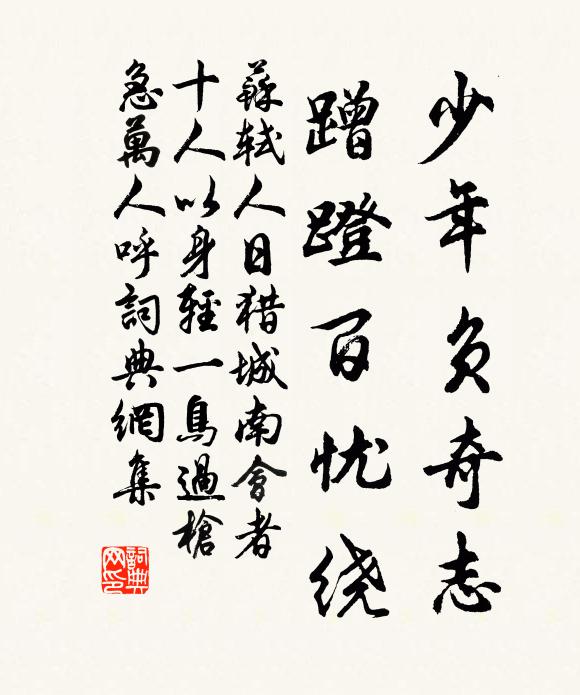 少年负奇志
蹭蹬百忧绕
蘇軾人日猎城南會者
十人以身輕一鳥過槍
急萬人呼詞典網集
詞典
网印